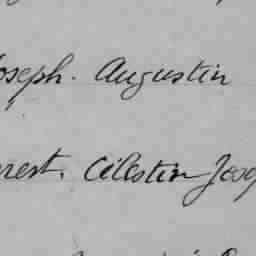 Joseph. Augustin
rest. Célestin Jos